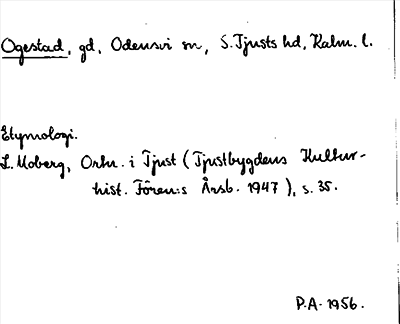 Ogestad, gd, Odensvi sn, S. Tjusts hd, Kalm. l.
Etymologi.
L. Moberg, Ortn. i Tjust (Tjustbygdens Kultur-
hist. Fören:s Årsb. 1947), s. 35.
P.A. 1956.